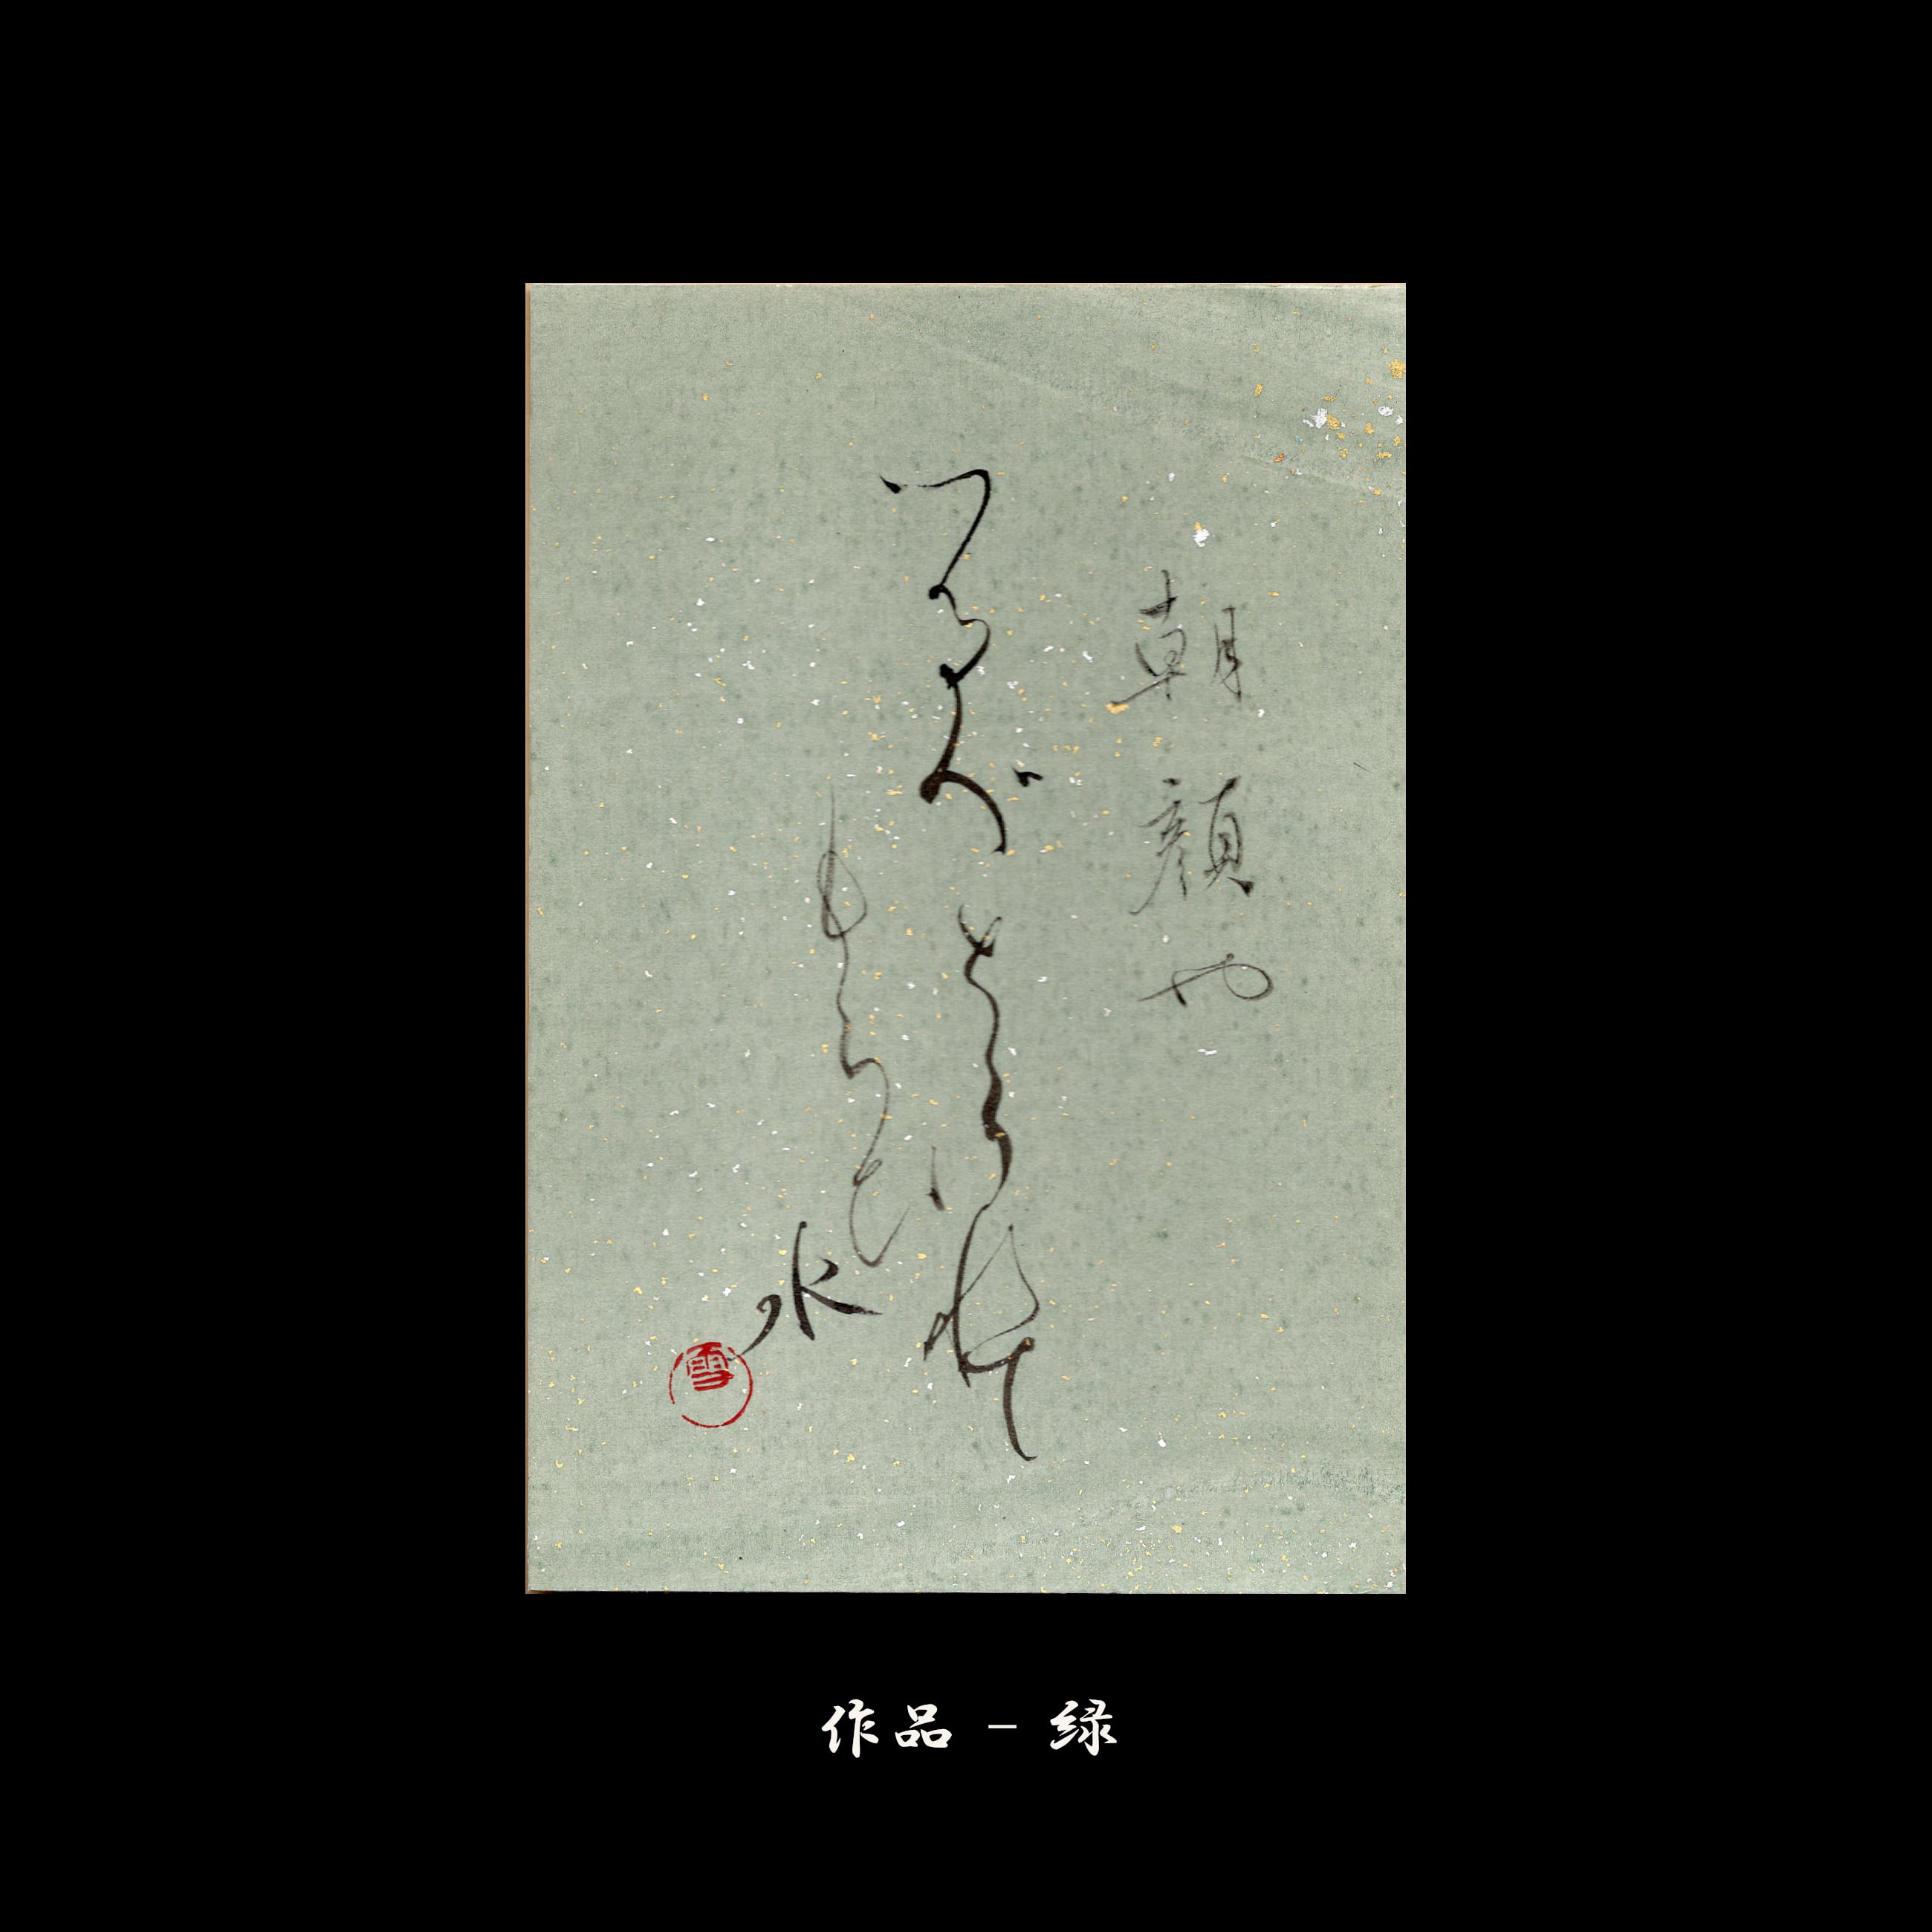 朝顔や
つるべとられて
もらひ水
雪
作品 - 緑